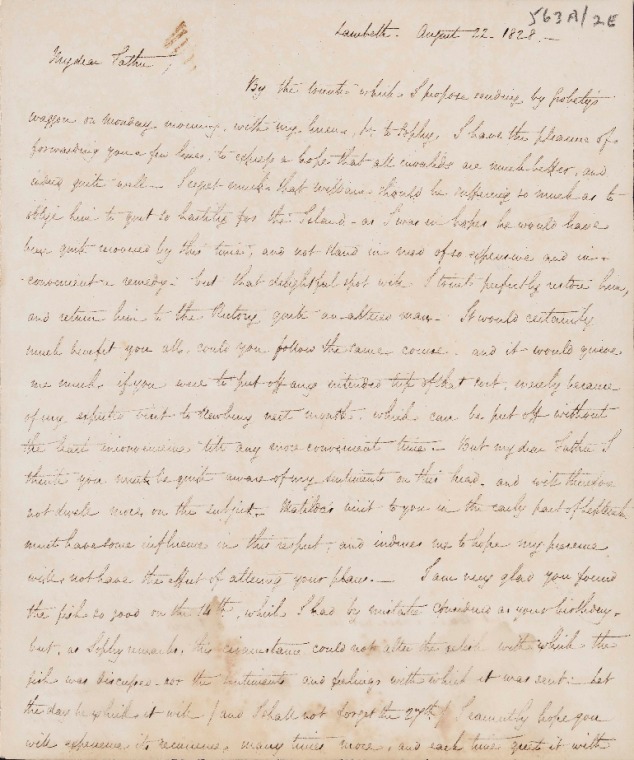 563A/2E
Lambeth. August 22. 1828.—
My dear Father,
By the trunk which I propose sending by
waggon on Monday morning, with my linen, &c to Sophy, I have the pleasure of
forwarding you a few lines, to express a hope that all invalids are much better, and
indeed quite well. I regret much that William should be suffering so much as to
oblige him to quit so hastily for the Island - as I was in hopes he would have
been quite recovered by this time, and not stand in need of so expensive and in-
convenient a remedy: but that delightful spot will I trust perfectly restore him,
and return him to the Rectory quite an altered man. It would certainly
much benefit you all, could you follow the same course. and it would grieve
me much if you were to put off any intended trip of that sort, merely because
of my expected visit to Newbury next month. which can be put off without
the least inconvenience till any more convenient time.— But my dear Father I
think you must be quite aware of my sentiments on this head. and will therefore
not dwell more on the subject. Matilda's visit to you in the early part of September
must have some influence in this respect, and induces me to hope my presence
will not have the effect of altering your plans.— I am very glad you found
the fish so good on the 14th, which I had by mistake considered as your birthday.
but, as Sophy remarks, the circumstance could not alter the relish with which the
fish was discussed - nor the sentiments and feelings with which it was sent: Let
the day be which it will (and I shall not forget the 27th) I sincerely hope you
will experience its recurrence, many times more, and each time greet it with